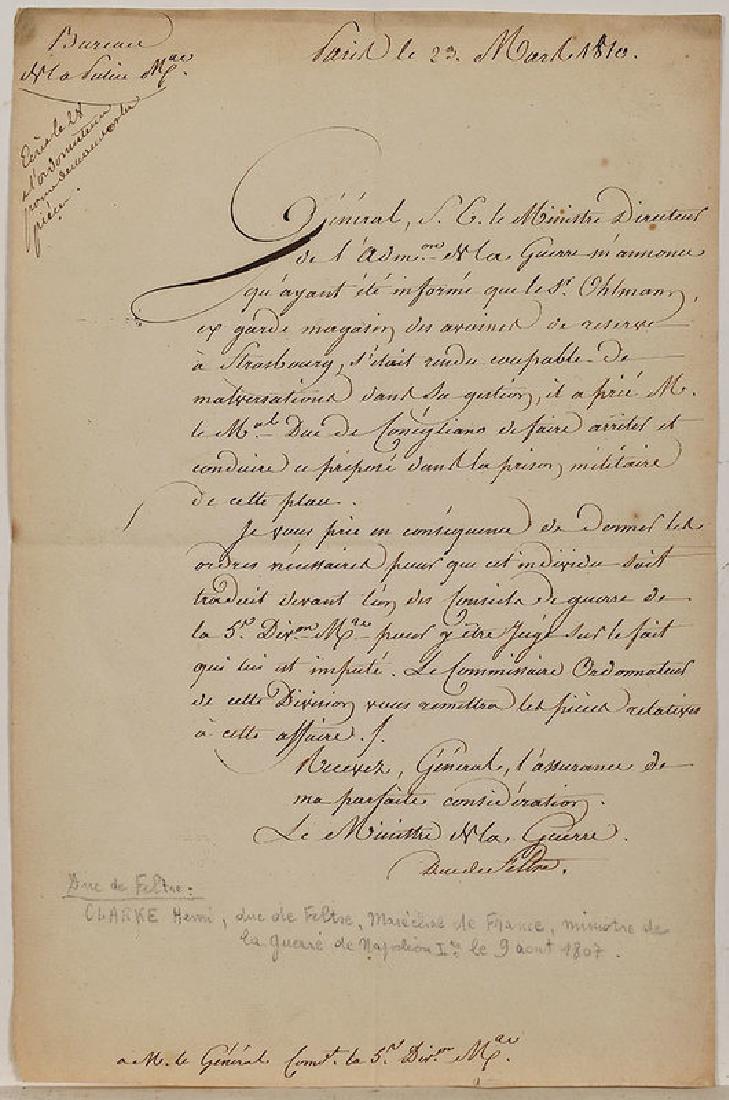 Bureau
de la Police Mre.
Paris le 23. Mars 1810.
Ecrit le 28
à l'ordonnateur
pour demander les
pièces.
Général, S. E. le Ministre Directeur
de l'Admon. de la Guerre m'annonce
qu'ayant été informé que le Sr. Ohlmann,
ex garde magasin des avoines de reserve
à Strasbourg, s'était rendu coupable de
malversations dans sa gestion, il a prié M.
le Mal. Duc de Conégliano de faire arrêter et
conduire ce préposé dans la prison militaire
de cette place.
Je vous prie en conséquence de donner les
ordres nécessaires pour que cet individu soit
traduit devant l'un des Conseils de guerre de
la 5e. Divon. Mre. pour y être jugé sur le fait
qui lui est imputé. Le Commissaire Ordonnateur
de cette Division vous remettra les pièces relatives
à cette affaire./.
Recevez, Général, l'assurance de
ma parfaite considération.
Le Ministre de la Guerre.
Duc de Feltre.
Duc de Feltre:
CLARKE Henri, duc de Feltre, Maréchal de France, ministre de
la guerre de Napoléon Ier le 9 aout 1807.
a M. le Général Comt. la 5e. Divon. Mre.